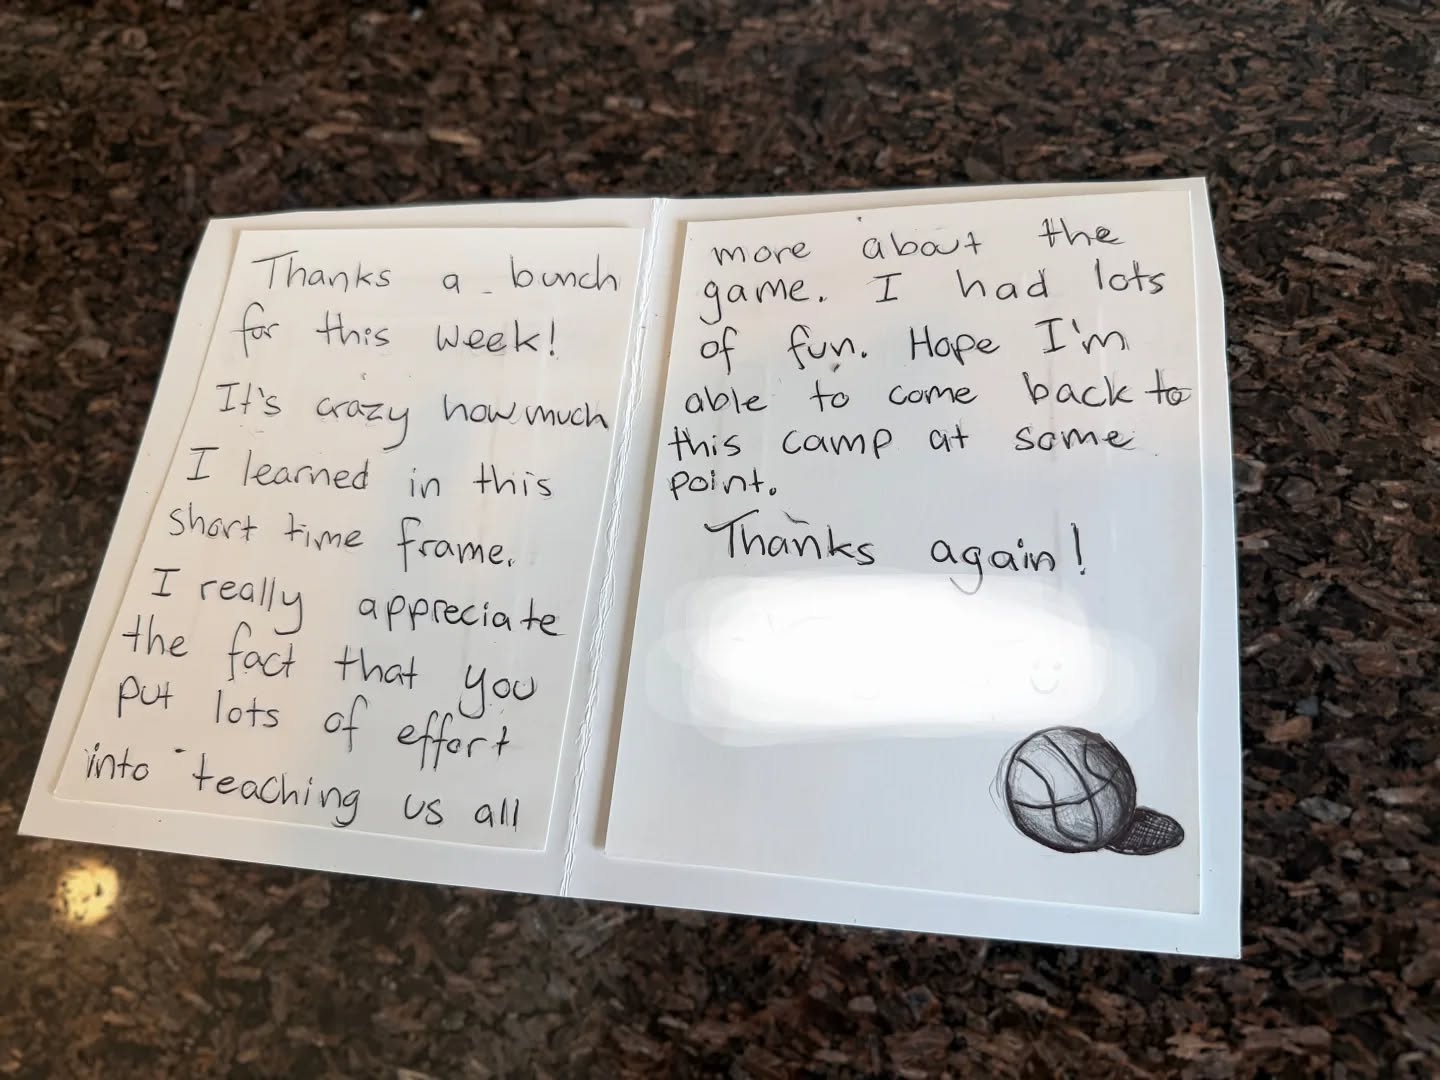 Thanks a bunch
for this week!
It's crazy how much
I learned in this
short time frame.
I really appreciate
the fact that you
put lots of effort
into teaching us all
more about the
game. I had lots
of fun. Hope I'm
able to come back to
this camp at some
point.
Thanks again!